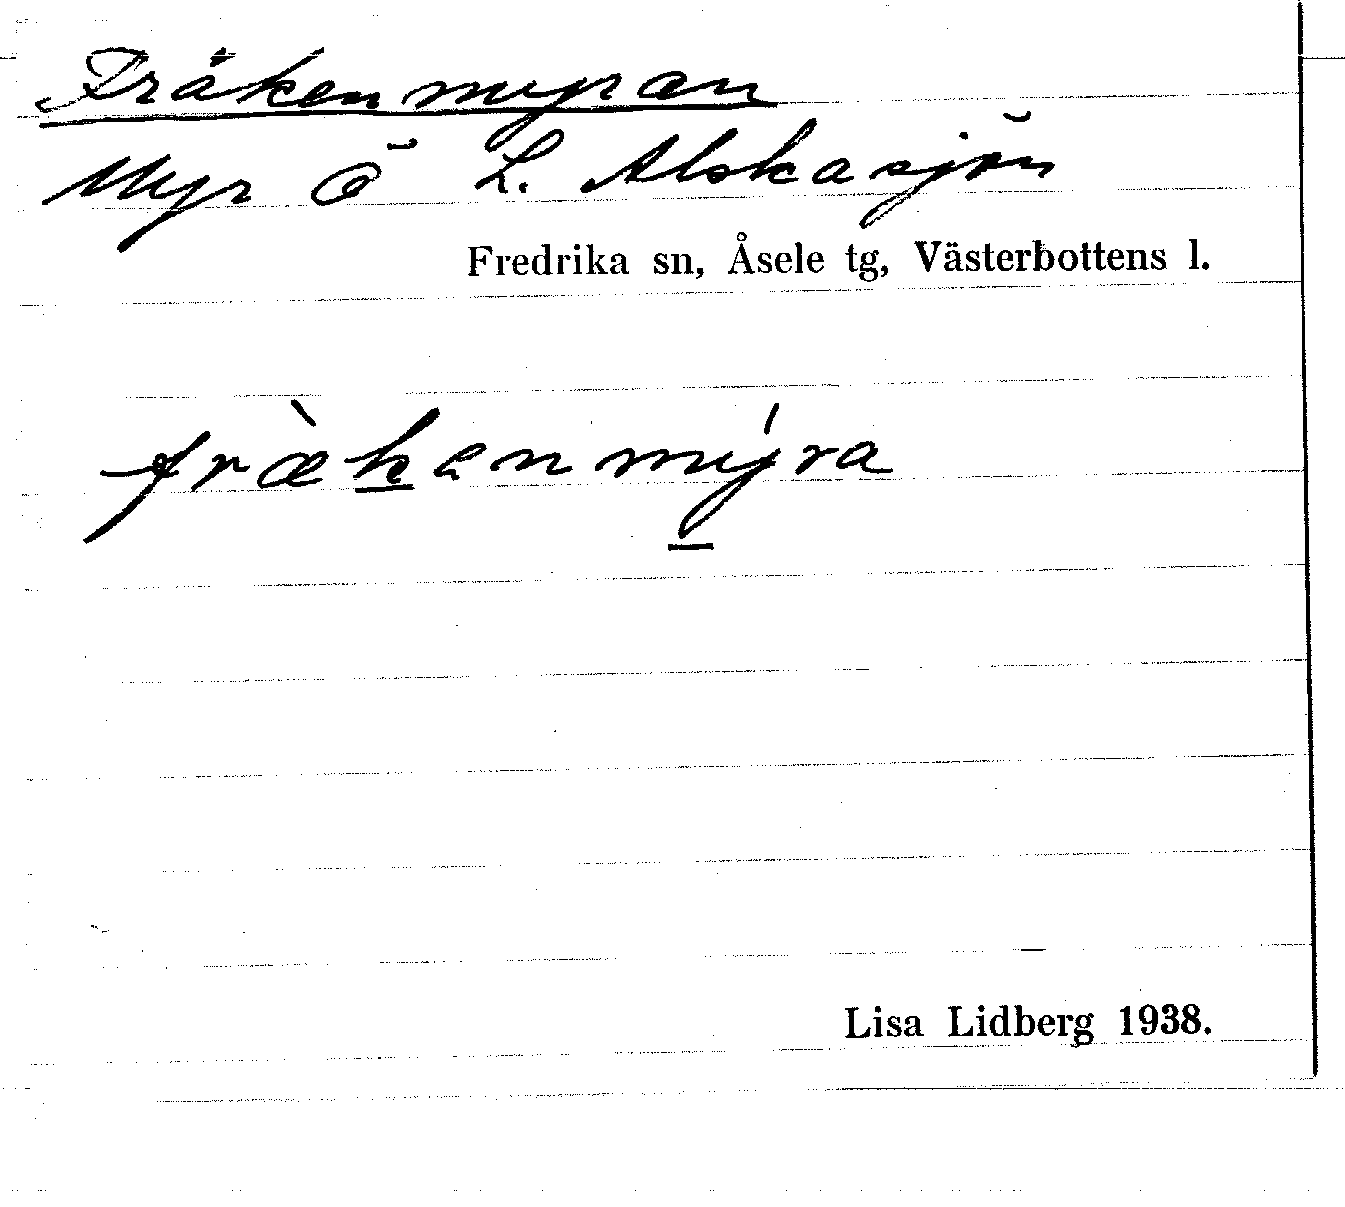 Fräkenmyran
Myr Ö L. Alskasjön
Fredrika sn, Åsele tg, Västerbottens l.
fræ̀kenmýra
Lisa Lidberg 1938.